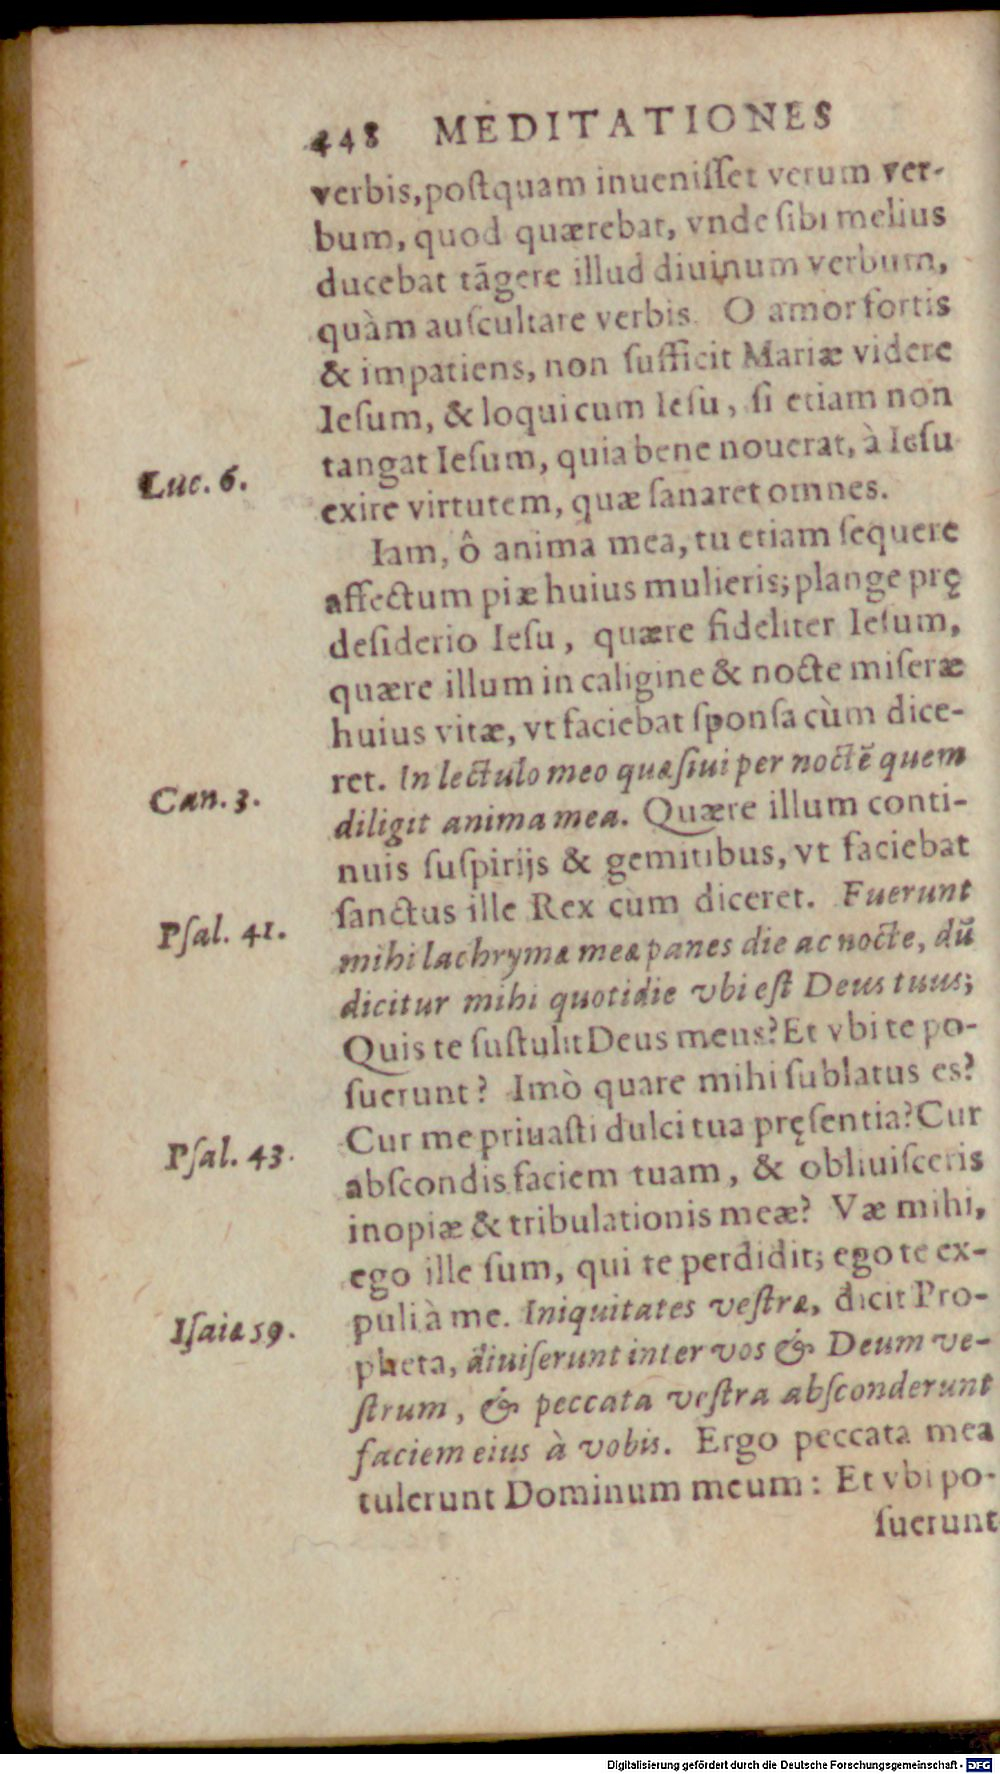 448 MEDITATIONES
verbis, poſtquam inueniſſet verum ver-
bum, quod quærebat, vnde ſibi melius
ducebat tãgere illud diuinum verbum,
quàm auſcultare verbis. O amor fortis
& impatiens, non ſufficit Mariæ videre
Ieſum, & loqui cum Ieſu, ſi etiam non
tangat Ieſum, quia bene nouerat, à Ieſu
Luc. 6.
exire virtutem, quæ ſanaret omnes.
Iam, ô anima mea, tu etiam ſequere
affectum piæ huius mulieris; plange prę
deſiderio Ieſu, quære fideliter Ieſum,
quære illum in caligine & nocte miſeræ
huius vitæ, vt faciebat ſponſa cùm dice-
ret. In lectulo meo quæſiui per noctẽ quem
Can. 3.
diligit anima mea. Quære illum conti-
nuis ſuſpirijs & gemitibus, vt faciebat
ſanctus ille Rex cùm diceret. Fuerunt
Pſal. 41.
mihi lachrymæ meæ panes die ac nocte, dũ
dicitur mihi quotidie vbi eſt Deus tuus;
Quis te ſuſtulit Deus meus? Et vbi te po-
ſuerunt? Imò quare mihi ſublatus es?
Cur me priuaſti dulci tua pręſentia? Cur
Pſal. 43.
abſcondis faciem tuam, & obliuiſceris
inopiæ & tribulationis meæ? Væ mihi,
ego ille ſum, qui te perdidit; ego te ex-
puli à me. Iniquitates veſtræ, dicit Pro-
Iſaiæ 59.
pheta, diuiſerunt inter vos & Deum ve-
ſtrum, & peccata veſtra abſconderunt
faciem eius à vobis. Ergo peccata mea
tulerunt Dominum meum: Et vbi po-
ſuerunt
Digitalisierung gefördert durch die Deutsche Forschungsgemeinschaft - DFG